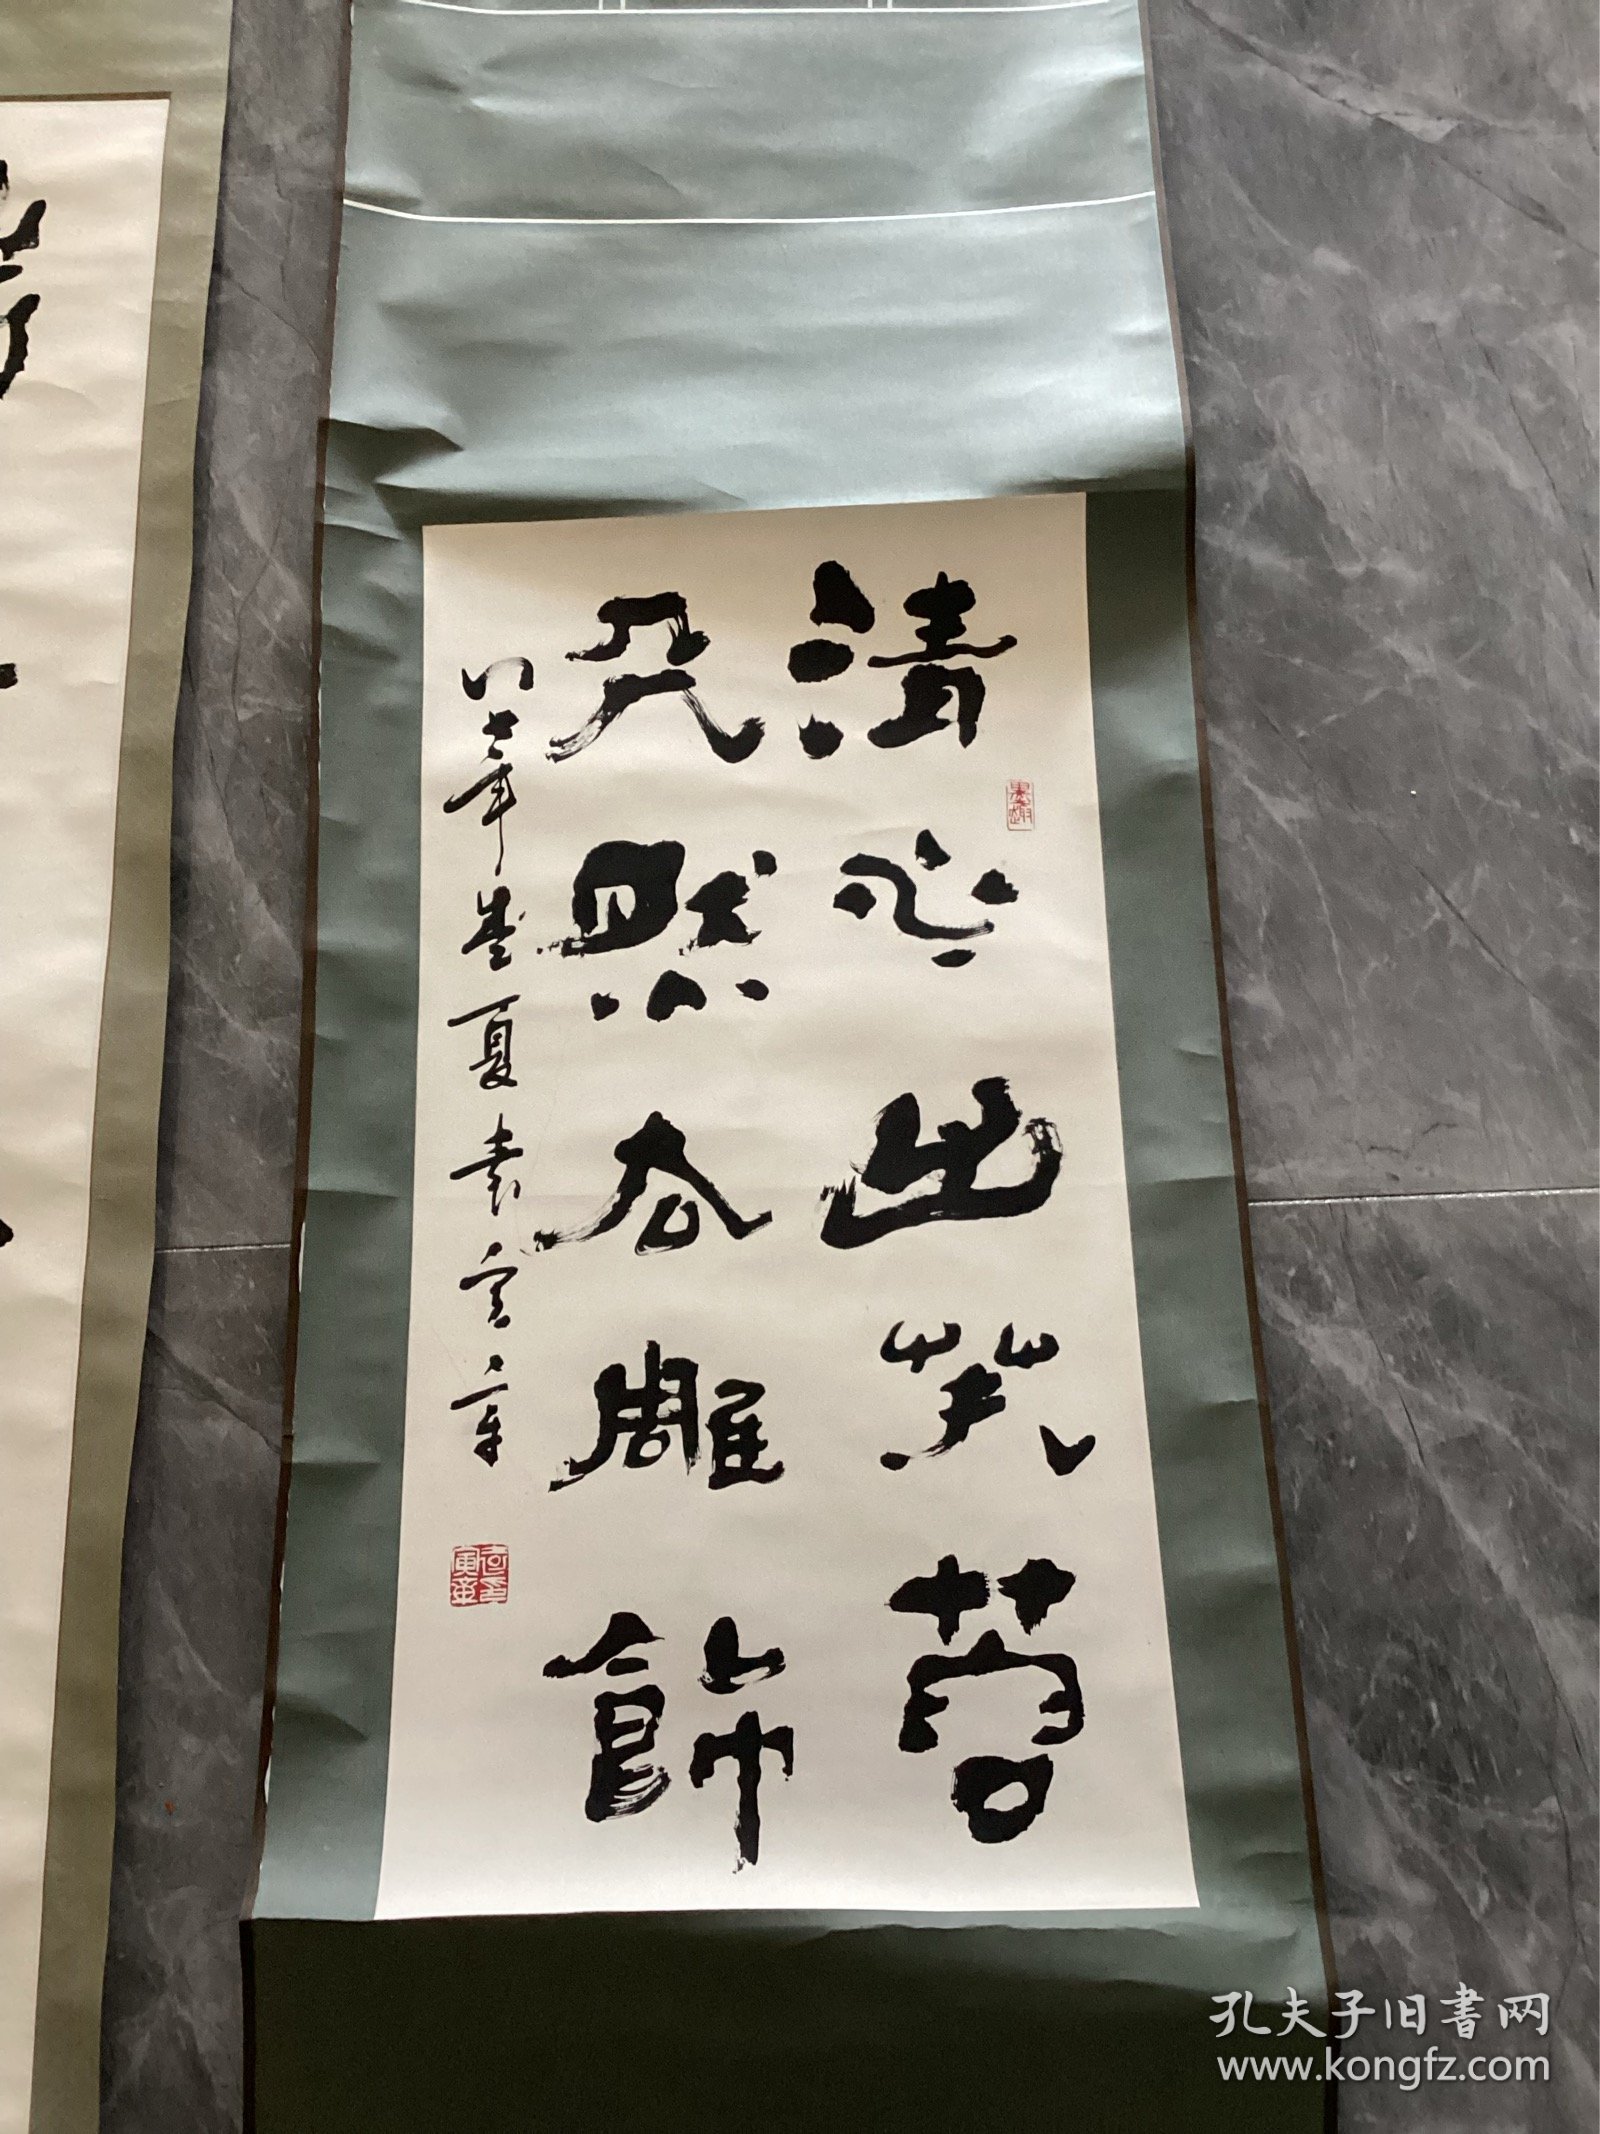 清水出芙蓉
天然去雕飾
年盛夏袁寅章
墨趣
孔夫子旧書网
www.kongfz.com